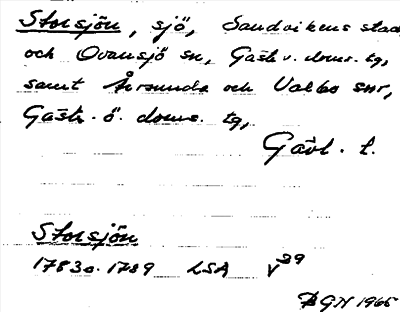 Storsjön, sjö, Sandvikens stad
och Ovansjö sn, Gästr. v. doms. tg,
samt Årsunda och Valbo snr,
Gästr. ö. doms. tg,
Gävl. l.
Storsjön
1783o. 1789 LSA V39
GN 1965